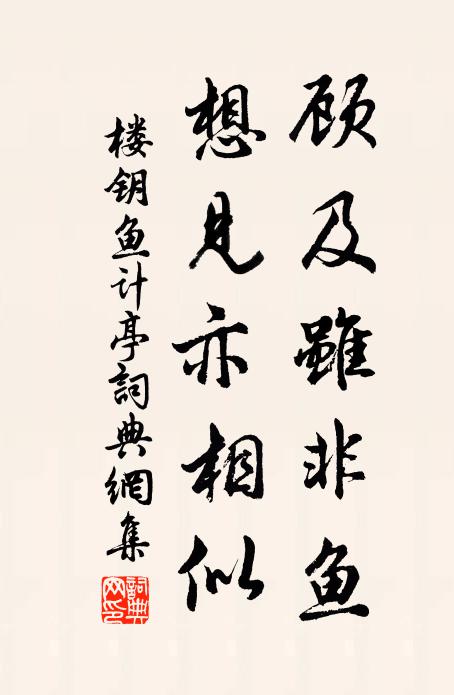 顾及雖非鱼
想见亦相似
楼钥鱼计亭詞典網集
詞典
网印